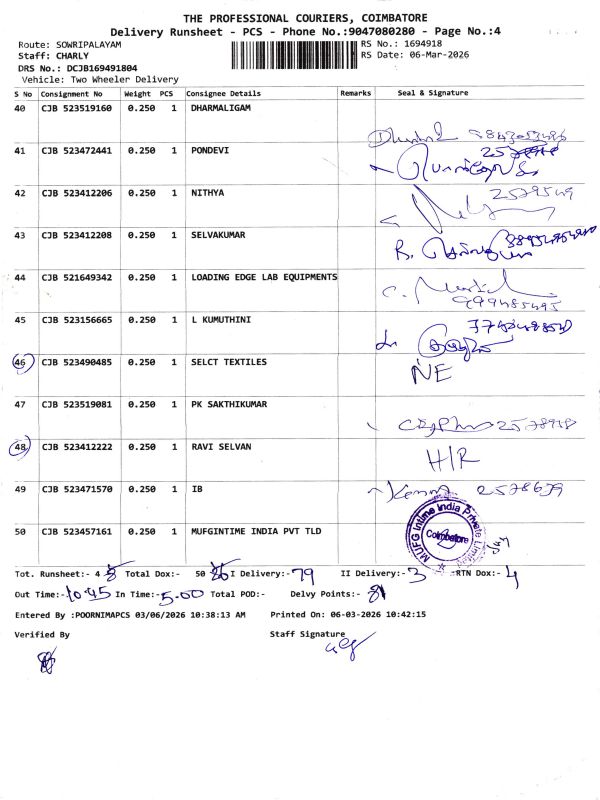 THE PROFESSIONAL COURIERS, COIMBATORE
Delivery Runsheet - PCS - Phone No.:9047080280 - Page No.:4
Route: SOWRIPALAYAM RS No.: 1694918
Staff: CHARLY RS Date: 06-Mar-2026
DRS No.: DCJB169491804
Vehicle: Two Wheeler Delivery
S No Consignment No Weight PCS Consignee Details Remarks Seal & Signature
40 CJB 523519160 0.250 1 DHARMALIGAM
41 CJB 523472441 0.250 1 PONDEVI
42 CJB 523412206 0.250 1 NITHYA
2579549
43 CJB 523412208 0.250 1 SELVAKUMAR
44 CJB 521649342 0.250 1 LOADING EDGE LAB EQUIPMENTS
45 CJB 523156665 0.250 1 L KUMUTHINI
46 CJB 523490485 0.250 1 SELCT TEXTILES
NE
47 CJB 523519081 0.250 1 PK SAKTHIKUMAR
48 CJB 523412222 0.250 1 RAVI SELVAN
H/R
49 CJB 523471570 0.250 1 IB
50 CJB 523457161 0.250 1 MUFGINTIME INDIA PVT TLD
MUFG Intime India Private Limited
Coimbatore
Tot. Runsheet:- 4 Total Dox:- 50 I Delivery:- 79 II Delivery:- 3 RTN Dox:- 4
Out Time:- 10.45 In Time:- 5.00 Total POD:- Delvy Points:- 81
Entered By :POORNIMAPCS 03/06/2026 10:38:13 AM Printed On: 06-03-2026 10:42:15
Verified By Staff Signature